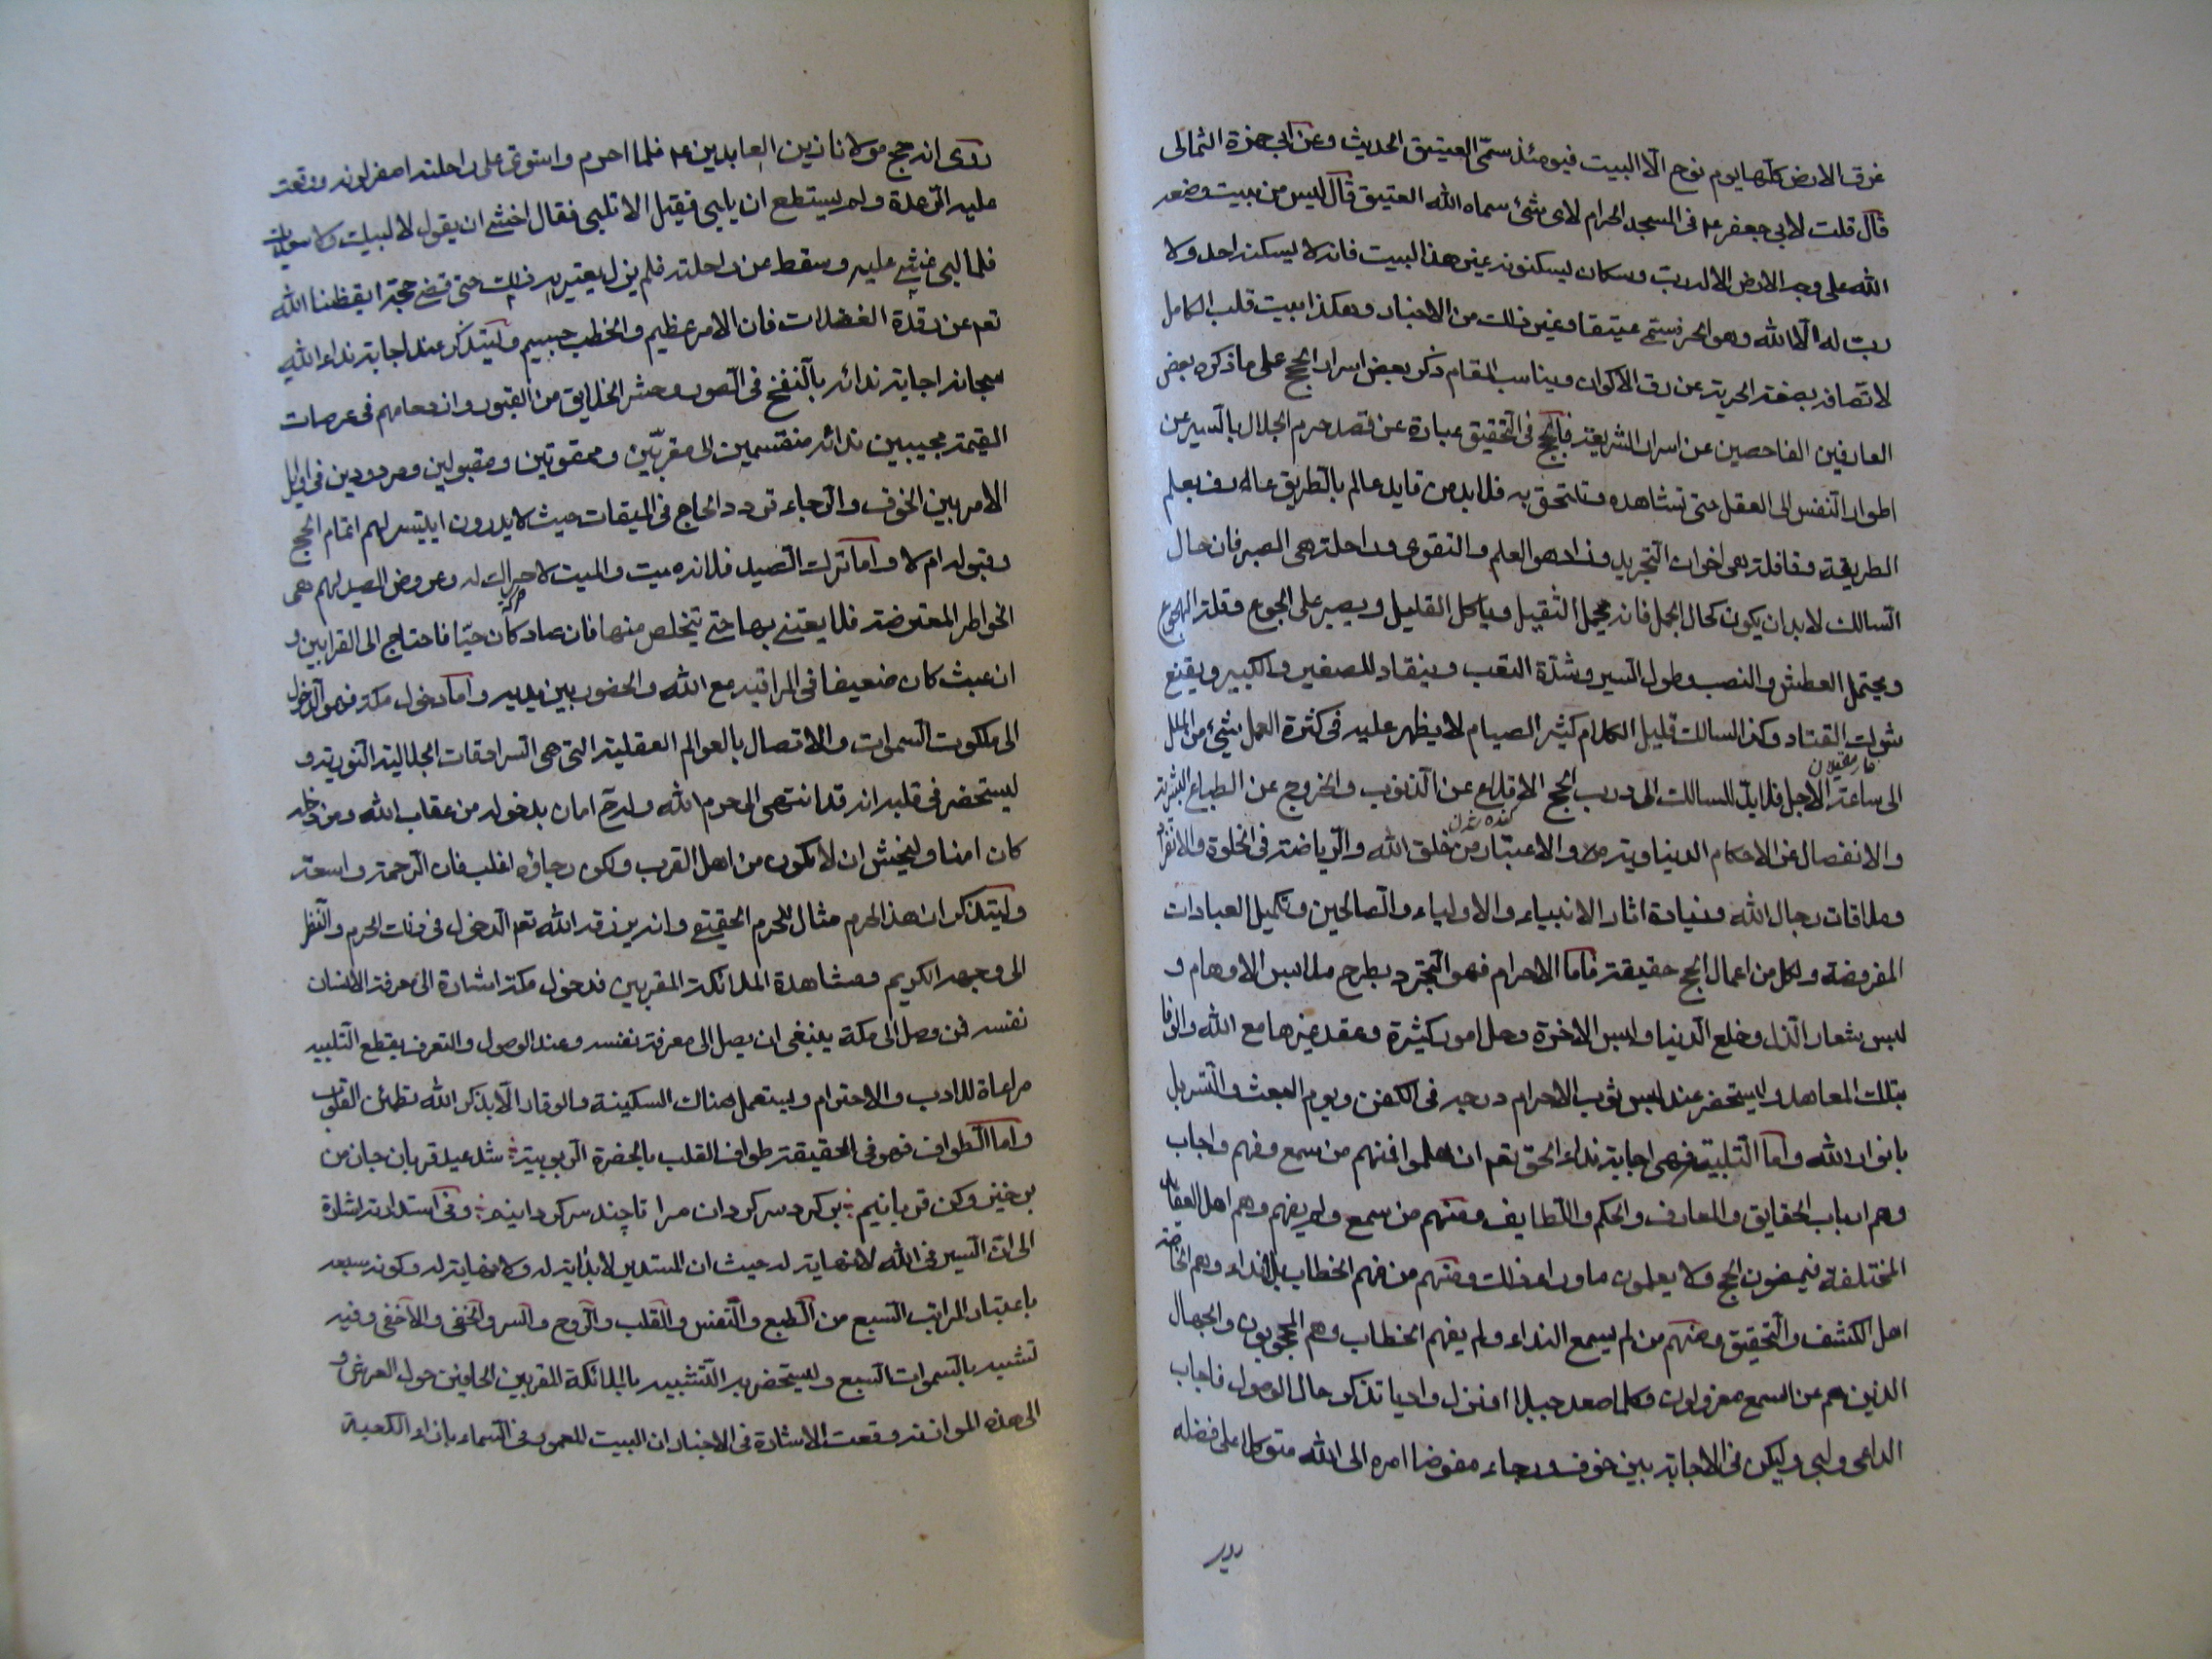 غرق الارض كلّها يوم نوح الّا البيت فيومئذ سمّى العتيق الحديث وعن ابي حمزة الثمالى
قال قلت لابي جعفر ع في المسجد الحرام لاى شئ سماه الله العتيق قال ليس من بيت وضعه
الله على وجه الارض الا له رب وسكان يسكنونه غير هذا البيت فانه لا يسكنه احد ولا
رب له الّا الله وهو الحر فسمّى عتيقا وغير ذلك من الاخبار وهكذا بيت قلب الكامل
لاتصافه بصفة الحرية عن رق الاكوان ويناسب المقام ذكر بعض اسرار الحج على ما ذكره بعض
العارفين الفاحصين عن اسرار الشريعة فالحج في التحقيق عبارة عن قصد حرم الجلال بالسير عن
اطوار النفس الى العقل حتى تشاهده وتتحقق به فلابد من قايد عالم بالطريق عارف بعلم
الطريقة وقافلته هى اخوان التجريد وزاده هو العلم والتقوى وراحلته هى الصبر فان حال
السالك لابد ان يكون كحال الجمل فانه يحمل الثقيل وياكل القليل ويصبر على الجوع وقلة الهجوع
ويحتمل العطش والنصب وطول السير وشدّة التعب وينقاد للصغير والكبير ويقنع
بشوك القتاد وكذا السالك قليل الكلام كثير الصيام لا يظهر عليه في كثرة العمل شئ من الملل
خار مغيلان
الى ساعة الاجل فلابدّ للسالك الى درب الحج الاقلاع عن الذنوب والخروج عن الطباع البشرية
كنده شدن
والانفصال عن الاحكام الدنياوية والاعتبار من خلق الله والرياضة في الخلوة والانفراد
وملاقات رجال الله وزيادة اثار الانبياء والاولياء والصالحين وتكميل العبادات
المفروضة ولكل من اعمال الحج حقيقة فاما الاحرام فهو التجرد بطرح ملابس الاوهام و
لبس شعار الذل وخلع الدنيا ولبس الاخرة وحل امور كثيرة وعقد غيرها مع الله والوفا
بتلك المعاهد وليستحضر عند لبس ثوب الاحرام درجه في الكفن ويوم البعث والتسربل
بانوار الله واما التلبية فهى اجابة نداء الحق تعم ان هلموا فمنهم من سمع وفهم واجاب
وهم ارباب الحقايق والمعارف والحكم واللطايف ومنهم من سمع ولم يفهم وهم اهل العقايد
المختلفة فيمضون الحج ولا يعلمون ما وراء ذلك ومنهم من فهم الخطاب بل النداء وهم الخاصة
اهل الكشف والتحقيق ومنهم من لم يسمع النداء ولم يفهم الخطاب وهم المحجوبون والجهال
الذين هم عن السمع معزولون وكلما صعد جبلا او نزل واديا تذكر حال الوصول فاجاب
الداعى ولبى وليكن في الاجابة بين خوف ورجاء مفوضا امره الى الله متوكلا على فضله
روى انه حج مولانا زين العابدين ع فلما احرم واستوى على راحلته اصفر لونه ووقعت
عليه الرعدة ولم يستطع ان يلبى فقيل الا تلبى فقال اخشى ان يقول لا لبيك ولا سعديك
فلما لبى غشى عليه وسقط عن راحلته فلم يزل يعتريه ذلك حتى قضى حجه ايقظنا الله
تعم عن رقدة الغفلات فان الامر عظيم والخطب جسيم وليتذكر عند اجابة نداء الله
سبحانه اجابة ندائه بالنفخ في الصور وحشر الخلايق من القبور وازدحامهم في عرصات
القيمة مجيبين ندائه منقسمين الى مقربين وممقوتين ومقبولين ومردودين في اوايل
الامر بين الخوف والرجاء تردد الحاج في الميقات حيث لا يدرون ايتيسر لهم اتمام الحج
وقبوله ام لا واما ترك الصيد فلانه ميت والميت لا حراك له وعروض الصيد لهم هى
حركة
الخواطر المعترضة فلا يعتنى بها حتى يتخلص منها فان صاد كان حيّا فاحتاج الى القرابين و
ان عبث كان ضعيفا في المراقبة مع الله والحضور بين يديه واما دخول مكة فهو الدخول
الى ملكوت السموات والاتصال بالعوالم العقلية التى هى السرادقات الجلالية النورية و
ليستحضر في قلبه انه قد انتهى الى حرم الله وله ثم امان بدخوله من عقاب الله ومن دخله
كان امنا وليخش ان لا يكون من اهل القرب وليكن رجاؤه اغلب فان الرحمة واسعة
وليتذكر ان هذا الحرم مثال للحرم الحقيقى وانه يرزقه الله تعم الدخول في ذلك الحرم والنظر
الى وجهه الكريم ومشاهدة الملائكة المقربين فدخول مكة اشارة الى معرفة الانسان
نفسه فمن وصل الى مكة ينبغى ان يصل الى معرفة نفسه وعند الوصول والتعرف يقطع التلبيه
مراعاة للادب والاحترام ويستعمل هناك السكينة والوقار الّا بذكر الله تطمئن القلوب
واما الطواف فهو في الحقيقة طواف القلب بالحضرة الربوبية شد عيد قربان جان من
برخيز وكن قربانيم بر كرد سر كردان مرا تا چند سركردانيم وفي استدارته اشارة
الى ان السير في الله لا نهاية له حيث ان المستدير لا بداية له ولا نهاية له وكونه سبعه
باعتبار المراتب السبع من الطبع والنفس والقلب والروح والسر والخفى والاخفى وفيه
تشبيه بالسموات السبع وليستحضر به التشبيه بالملائكة المقربين الحافين حول العرش و
الى هذه الموازنة وقعت الاشارة في الاخبار ان البيت المعمور في السماء بازاء الكعبة
روى